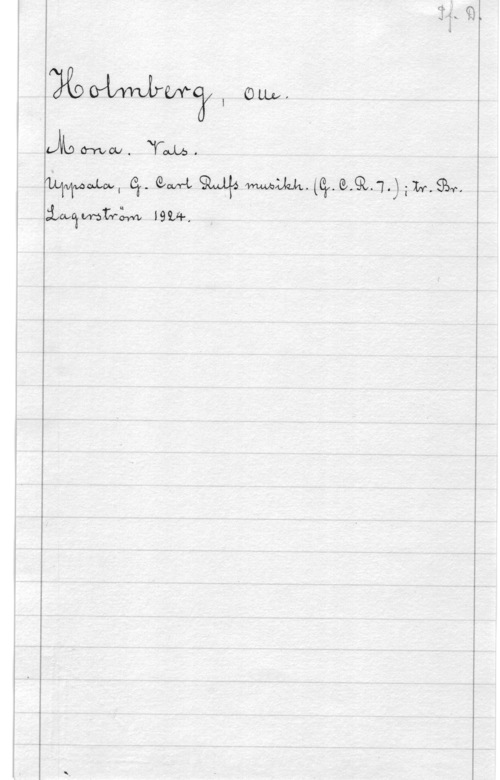 Pf. D.
Holmberg, Olle.
Mona. Vals.
Uppsala, G. Carl Rulfs musikh. (G.C.R.7.); tr. Br.
Lagerström 1924.